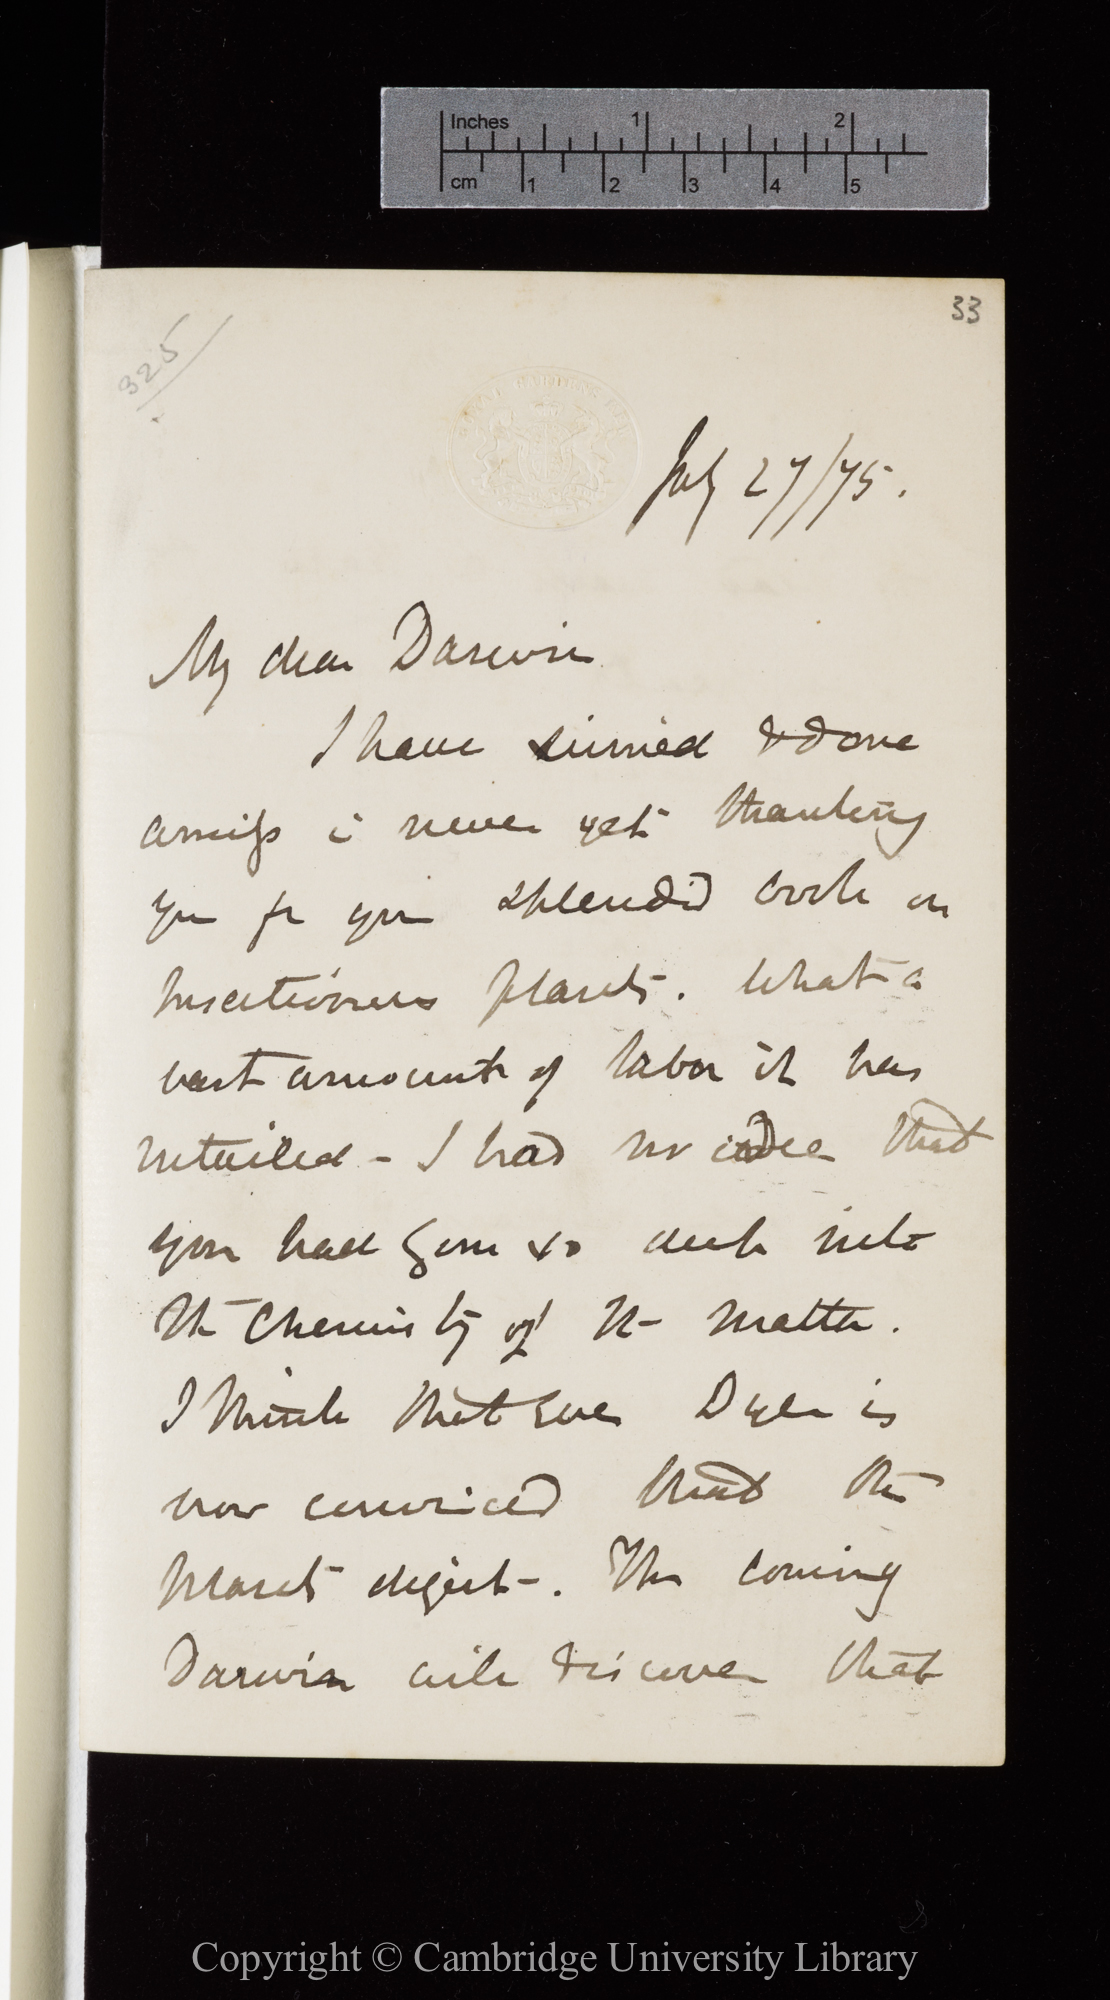 Inches 1 2
cm 1 2 3 4 5
33
325
ROYAL GARDENS KEW
July 27/75.
My dear Darwin
I have sinned & done
amiss in never yet thanking
you for your splendid book on
Insectivorous plants. What a
vast amount of labor it has
entailed – I had no idea that
you had gone so deep into
the Chemistry of the matter.
I think that even Dyer is
now convinced that the
plants digest –. The coming
Darwin will discover that
Copyright © Cambridge University Library